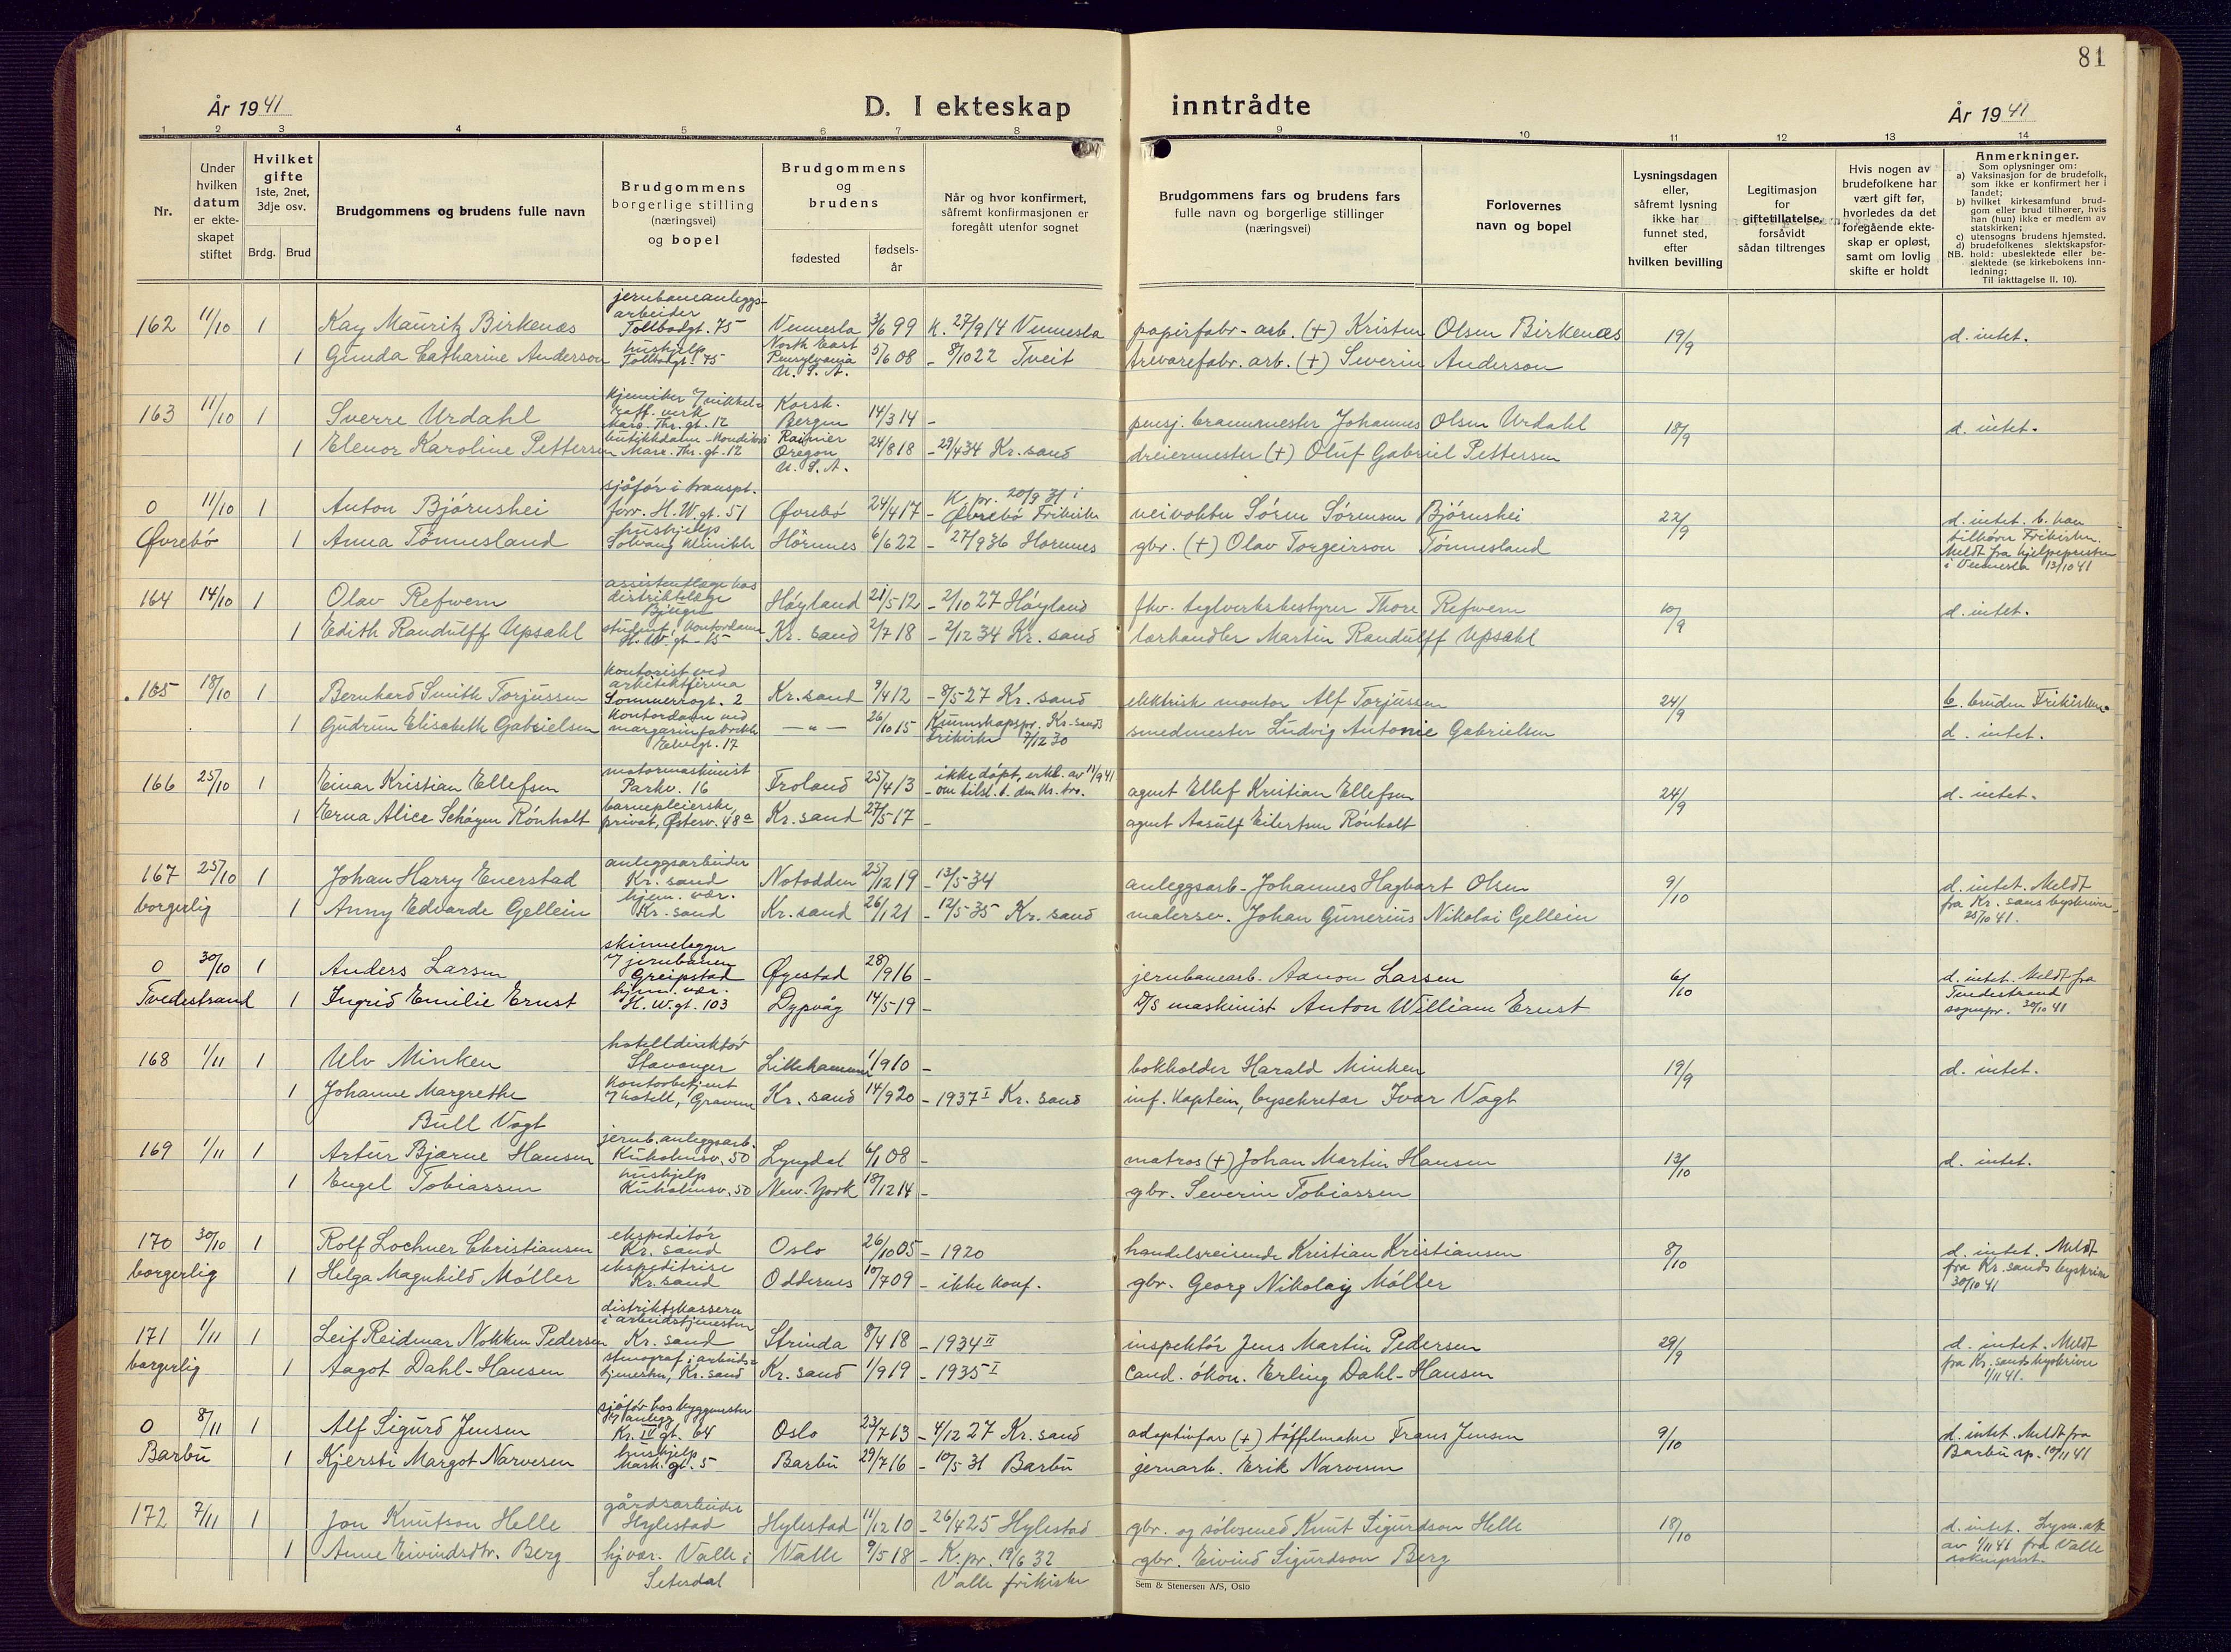 81
År 1941
D. I ekteskap inntrådte
År 1941
1 2 3 4 5 6 7 8 9 10 11 12 13 14
Nr.
Under hvilken datum er ekteskapet stiftet
Hvilket gifte 1ste, 2net, 3dje osv.
Brdg. Brud
Brudgommens og brudens fulle navn
Brudgommens borgerlige stilling (næringsvei) og bopel
Brudgommens og brudens
fødested
fødselsår
Når og hvor konfirmert, såfremt konfirmasjonen er foregått utenfor sognet
Brudgommens fars og brudens fars fulle navn og borgerlige stillinger (næringsvei)
Forlovernes navn og bopel
Lysningsdagen eller, såfremt lysning ikke har funnet sted, efter hvilken bevilling
Legitimasjon for giftetillatelse, forsåvidt sådan tiltrenges
Hvis nogen av brudefolkene har vært gift før, hvorledes da det foregående ekteskap er opløst, samt om lovlig skifte er holdt
Anmerkninger.
Som oplysninger om:
a) Vaksinasjon for de brudefolk, som ikke er konfirmert her i landet;
b) hvilket kirkesamfund brudgom eller brud tilhører, hvis han (hun) ikke er medlem av statskirken;
c) utensogns brudens hjemsted.
d) brudefolkenes slektskapsforhold: ubeslektede eller beslektede (se kirkebokens innledning;
NB. Til iakttagelse II. 10).
162 11/10 1 Kay Mauritz Birkenæs jernbaneanleggsarbeider Tollbodgt. 75 Vennesla 3/6 99 K. 27/9 14 Vennesla papirfabr. arb. (+) Kristen Olsen Birkenæs 19/9 d. intet.
1 Gunda Catharine Anderson hushjelp Tollbodgt. 75 North East Pensylvania U.S.A. 5/6 08 - 8/10 22 Tveit trevarefabr. arb. (+) Severin Anderson
163 11/10 1 Sverre Urdahl kjemiker v/ nikkelraff. verk Mark. Thr. gt. 12 Korsk. Bergen 14/3 14 - pensj. brannmester Johannes Olsen Urdahl 18/9 d. intet.
1 Elenor Karoline Pettersen butikkdame - konditori Mark. Thr. gt. 12 Rainier Oregon U.S.A. 24/8 18 - 29/4 34 Kr.sand dreiermester (+) Oluf Gabriel Pettersen
0 11/10 1 Anton Bjørnshei sjåfør i transpt. forr. H.W.gt. 51 Øvrebø 24/4 17 - K. pr. 20/9 31 i Øvrebø Frikirke veivokter Søren Sørensen Bjørnshei 22/9 d. intet. b. han tilhører Frikirken. Meldt fra hjelpepresten i Vennesla 13/10 41
Øvrebø 1 Anna Tønnesland hushjelp Solvang klinikk Hornnes 6/6 22 - 27/9 36 Hornnes gbr. (+) Olav Torgeirson Tønnesland
164 14/10 1 Olav Refwem assistentlæge hos distriktslæge Bjuge Høyland 21/5 12 - 2/10 27 Høyland fhv. teglverksbestyrer Thore Refwem 10/9 d. intet.
1 Edith Randulff Upsahl student, kontordame H.W.gt. 15 Kr. sand 2/7 18 - 2/12 34 Kr. sand lærhandler Martin Randulff Upsahl
165 18/10 1 Bernhard Smith Torjussen kontorist ved arkitektfirma Sommerrogt. 2 Kr.sand 9/4 12 - 8/5 27 Kr. sand elektrisk montør Alf Torjussen 24/9 b. bruden Frikirken.
1 Gudrun Elisabeth Gabrielsen kontordame ved margarinfabrikk 17 -"- 26/10 15 Kunnskapspr. Kr.sands Frikirke 7/12 30 smedmester Ludvig Antonie Gabrielsen d. intet.
166 25/10 1 Einar Kristian Ellefsen motormaskinist Parkv. 16 Froland 25/4 13 ikke døpt, erkl. av 11/9 41 - om tilsl. t. den kr. tro. agent Ellef Kristian Ellefsen 24/9 d. intet.
1 Erna Alice Schøyen Rønholt barnepleierske, privat, Østerv. 48a Kr. sand 27/5 17 - agent Aasulf Eilertsen Rønholt
167 25/10 1 Johan Harry Enerstad anleggsarbeider Kr. sand Notodden 25/12 19 - 13/5 34 anleggsarb. Johannes Hagbart Olsen 9/10 d. intet. Meldt fra Kr. sans byskriver 25/10 41.
borgerlig 1 Anny Edvarde Gellein hjem. vær. Kr. sand Kr. sand 26/1 21 - 12/5 35 Kr. sand malersv. Johan Gunerius Nikolai Gellein
0 30/10 1 Anders Larsen skinnelegger v/ jernbanen Greipstad Øyestad 28/9 16 - jernbanearb. Aanon Larsen 6/10 d. intet. Meldt fra Tvedestrand sognepr. 30/10 41
Tvedestrand 1 Ingrid Emilie Ernst hjem. vær. H.W.gt. 103 Dypvåg 14/5 19 - D/S maskinist Anton William Ernst
168 1/11 1 Ulv Minken hotelldirektør Stavanger Lillehammer 1/9 10 - bokholder Harald Minken 19/9 d. intet.
1 Johanne Margrethe Bull Vogt kontorbetjent v/ hotell, Gravene Kr. sand 14/9 20 - 1937 I Kr. sand inf. kaptein, bysekretær Ivar Vogt
169 1/11 1 Artur Bjarne Hansen jernb. anleggsarb. Kuholmsv. 50 Lyngdal 6/1 08 - matros (+) Johan Martin Hansen 13/10 d. intet.
1 Engel Tobiassen hushjelp Kuholmsv. 50 New. York 18/12 14 - gbr. Severin Tobiassen
170 30/10 1 Rolf Lochner Christiansen ekspeditør Kr. sand Oslo 26/10 05 - 1920 handelsreisende Kristian Kristiansen 8/10 d. intet. Meldt fra Kr. sands byskriver 30/10 41
borgerlig 1 Helga Magnhild Møller ekspeditrise Kr.sand Oddernes 10/7 09 - ikke konf. gbr. Georg Nikolay Møller
171 1/11 1 Leif Reidmar Nokken Pedersen distriktskasserer i arbeidstjenesten Kr. sand Strinda 8/4 18 - 1934 II inspektør Jens Martin Pedersen 29/9 d. intet. Meldt fra Kr. sands byskriver 1/11 41.
borgerlig 1 Aagot Dahl-Hansen stenograf i arbeidstjenesten, Kr. sand Kr. sand 1/9 19 - 1935 I cand. økon. Erling Dahl-Hansen
0 8/11 1 Alf Sigurd Jensen sjåfør hos byggmester v/ anlegg Kr. IV gt. 64 Oslo 23/7 63 - 4/12 27 Kr. sand adoptivfar (+) tøffelmaker Frans Jensen 9/10 d. intet. Meldt fra Barbu sp. 10/11 41
Barbu 1 Kjersti Margot Narvesen hushjelp Mark. gt. 5 Barbu 29/7 16 - 10/5 31 Barbu jernarb. Erik Narvesen
172 7/11 1 Jon Knutson Helle gårdsarbeider Hylestad Hylestad 11/12 10 - 26/4 25 Hylestad gbr. og sølvsmed Knut Sigurdson Helle 18/10 d. intet. Lysn. att. av 1/11 41 fra Valle sokneprest.
1 Anne Eivindsdtr. Berg hj. vær. Valle i Setesdal Valle 9/5 18 - K. pr. 19/6 32 Valle frikirke gbr. Eivind Sigurdson Berg
Sem & Stenersen A/S, Oslo